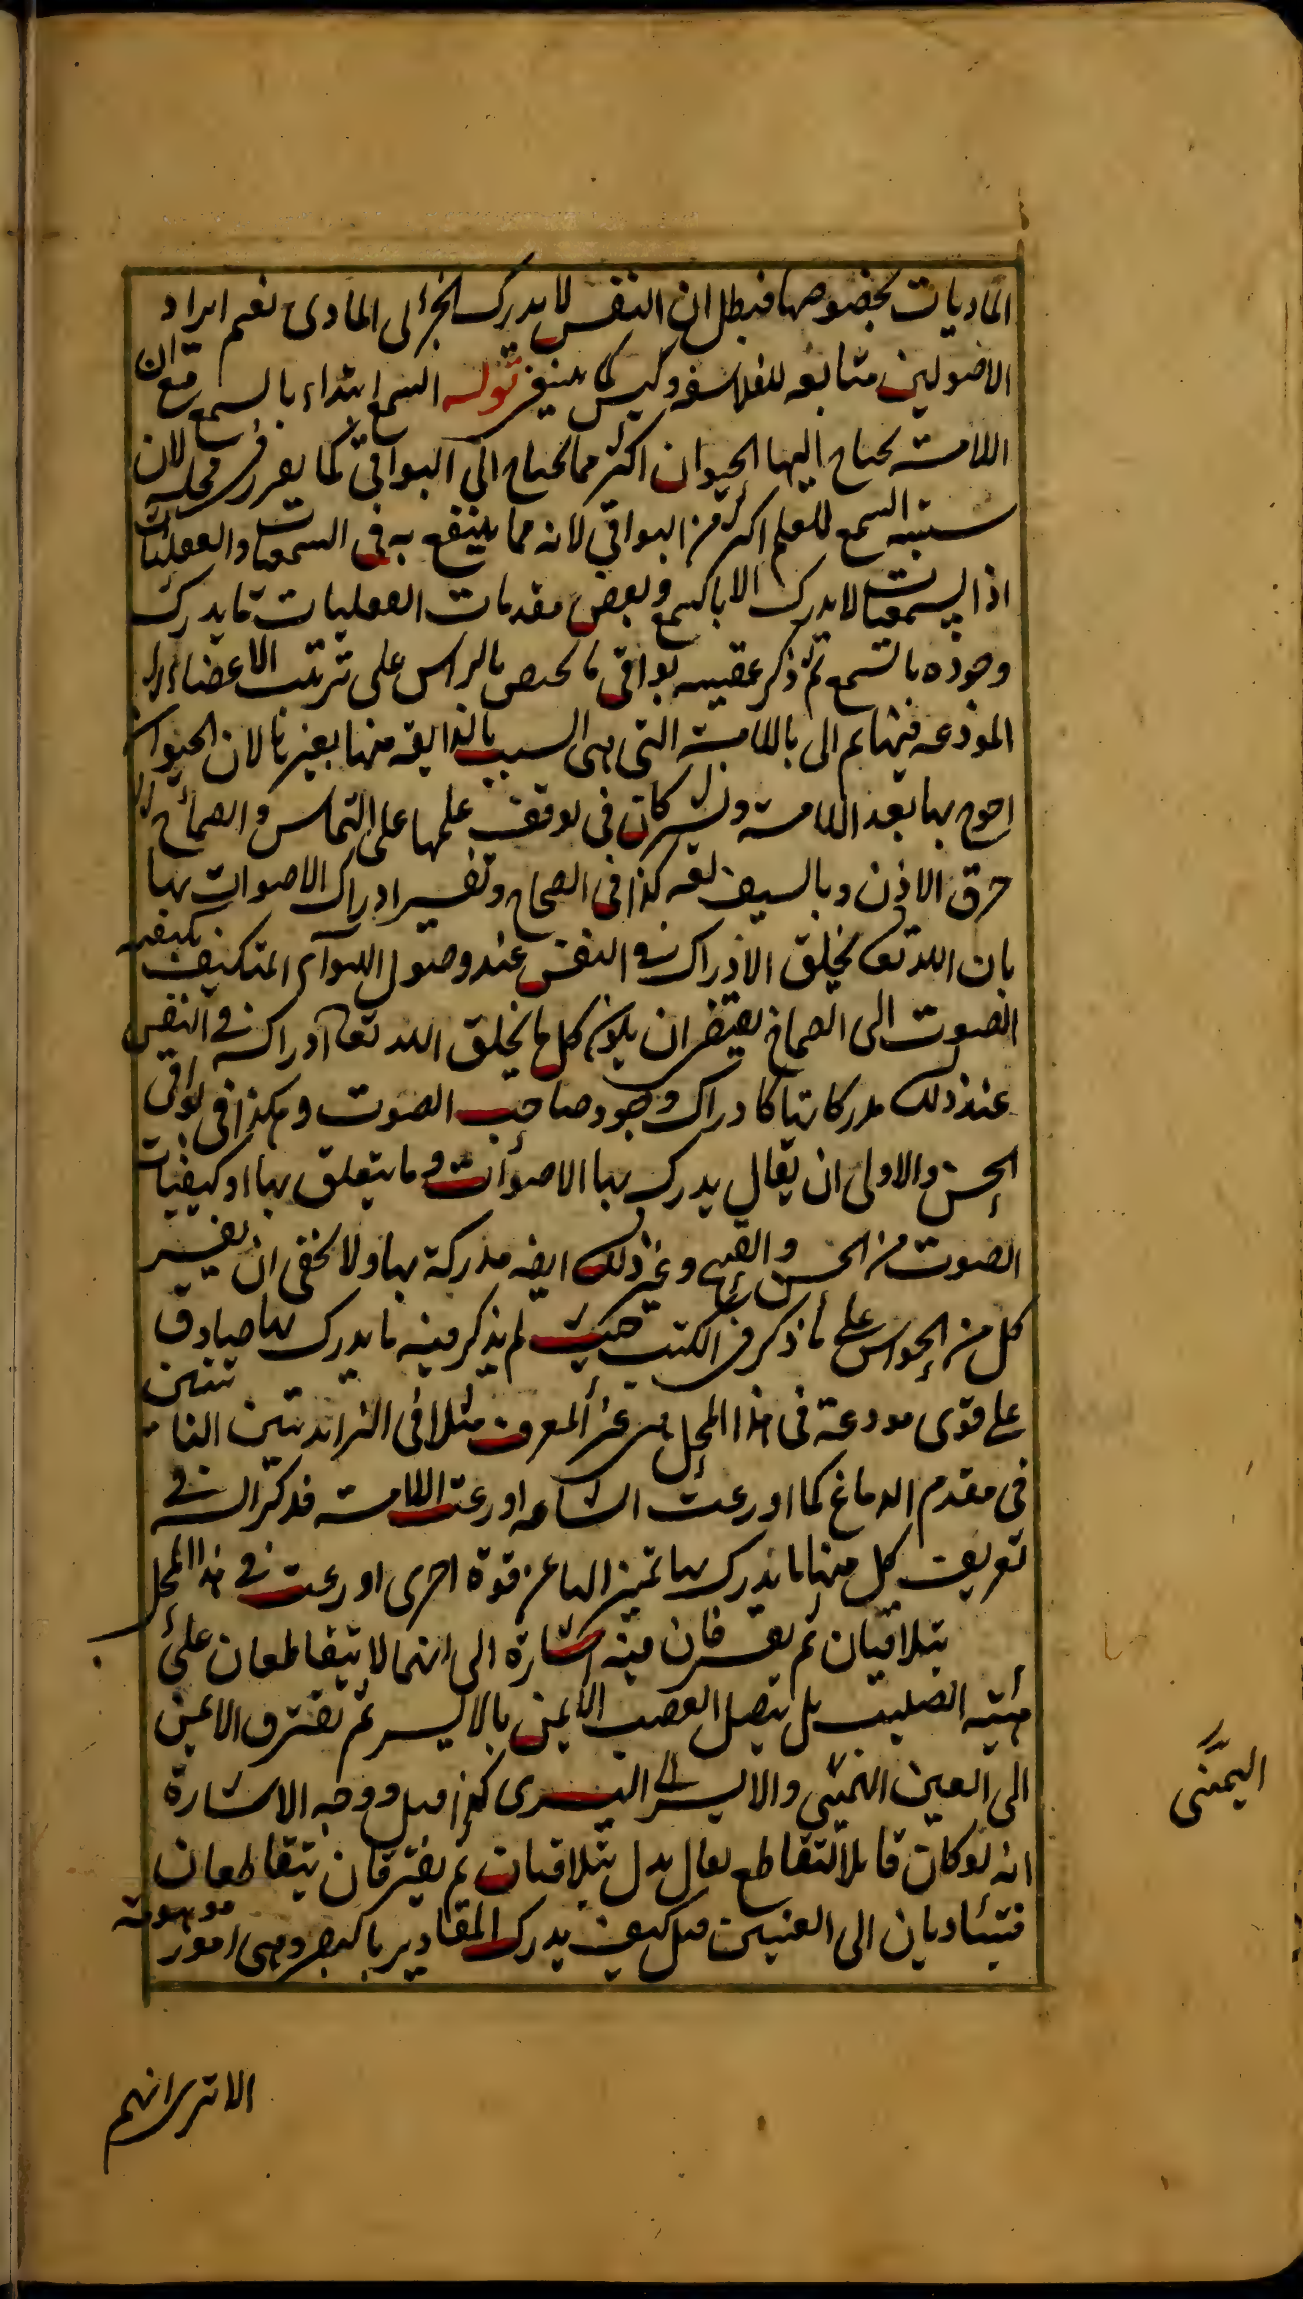 الماديات بخصوصها فبطل ان النفس لا يدرك الجزئى المادى نعم ايراد
الاصولين متابعه للفلاسفه وليس كما ينبغى قوله السمع ابتداء بالسمع مع ان
اللامسة يحتاج اليها الحيوان اكثر مما يحتاج الى البواقى كما يقرر فى محله لان
نسبته السمع للعلم اكثر من البواقى لانه مما ينتفع به فى السمعيات والعقليات
اذ السمعيات لا يدرك الا بالسمع وبعض مقدمات العقليات ما يدرك
وجوده بالسمع ثم ذكر عقيبه بواقى ما يختص بالراس على ترتيب الاعضاء
المودعة فيها ثم الى باللامسة التى هى انسب بالذايقه منها بغيرها لان الحيوان
احوج بها بعد اللامسة ويشتركان فى توقف علمها على التماس والصماخ
خرق الاذن وبالسين لغه كذا فى الصحاح وتفسير ادراك الاصوات بها
بان الله تعا يخلق الادراك فى النفس عند وصول الهواء المتكيف بكيفيه
الصوت الى الصماخ يقتضى ان يكون كل ما يخلق الله تعا ادراكه فى النفس
عند ذلك مدركا بها كادراك وجود صاحب الصوت وهكذا فى بواقى
الحس والاولى ان يقال يدرك بها الاصوات وما يتعلق بها او كيفيات
الصوت من الحسن والقبح وغير ذلك ايضه مدركة بها ولا يخفى ان تفسير
كل من الحواس على ما ذكر فى الكتب حيث لم يذكر فيه ما يدرك بها صادق
على قوى مودعة فى هذا المحل هى غير المعرف مثلا فى الزائدتين الناتئتين
فى مقدم الدماغ كما اودعت الشامه اودعت اللامسة فذكر الـ فى
تعريف كل منها ما يدرك بها تميز الها عن قوة اخرى اودعت فى هذا المحل
يتلاقيان ثم يفترقان فيه اشارة الى انهما لا يتقاطعان على
هيئة الصليب بل يتصل العصب الايمن بالايسر ثم تفترق الايمن
الى العين اليمنى والايسر الى اليسرى كذا قيل ووجه الاشارة
انه لو كان قابلا لتقاطع لقال بدل يتلاقيان ثم يفترقان يتقاطعان
فتتأديان الى العينين قيل كيف يدرك المقادير بالبصر وهى امور موهومة
اليمنى
الا ترى انهم